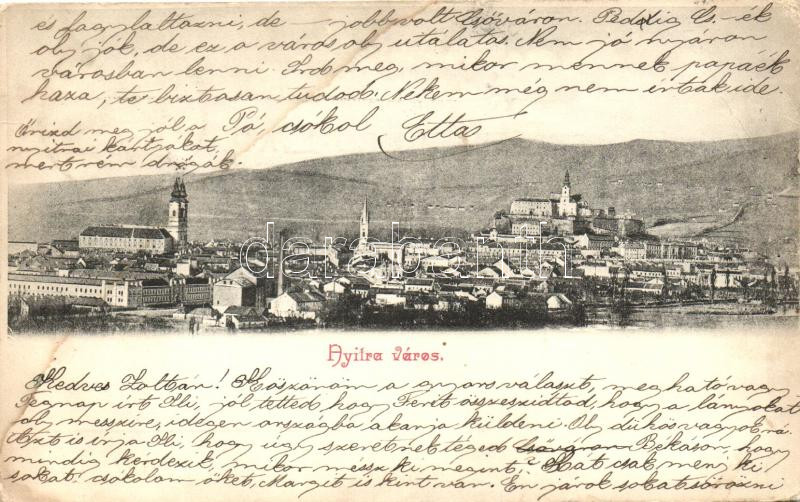 és fagylaltozni, de jobb volt Csóváron. Peddig Cs.-ék
oly jók, de ez a város oly utálatos. Nem jó nyáron
városban lenni. Ird meg, mikor mennek papáék
haza, te biztosan tudod. Nekem még nem irtak ide.
Őrizd meg jól a Pá, csókol Ettas
nyitrai kártyákat,
mert rém drágák.
darabanth
Nyitra város.
Kedves Zoltán! Köszönöm a gyors választ, megható vagy
Tegnap írt Ili, jól tetted hogy Ferit összeszidtad, hogy a lányokat
oly messzire, idegen országba akarja küldeni. Oly dühös vagyok rá
Azt is irja Ili, hogy úgy szeretnek téged Békáson, hogy
mindig kérdezik, mikor mész ki megint? Hat csak menj ki
sokat! csókolom őket, Margit is kint van. Én járok sokat sörözni